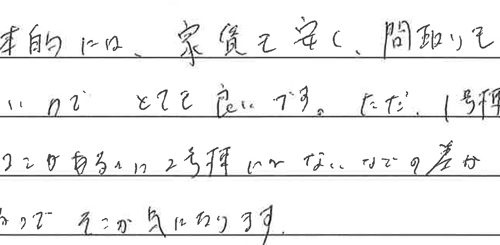 本的には、家賃も安く、間取りも
いいので とても良いです。ただ、1号棟
ある 2号棟 ない などの差が
ので そこが気になります。